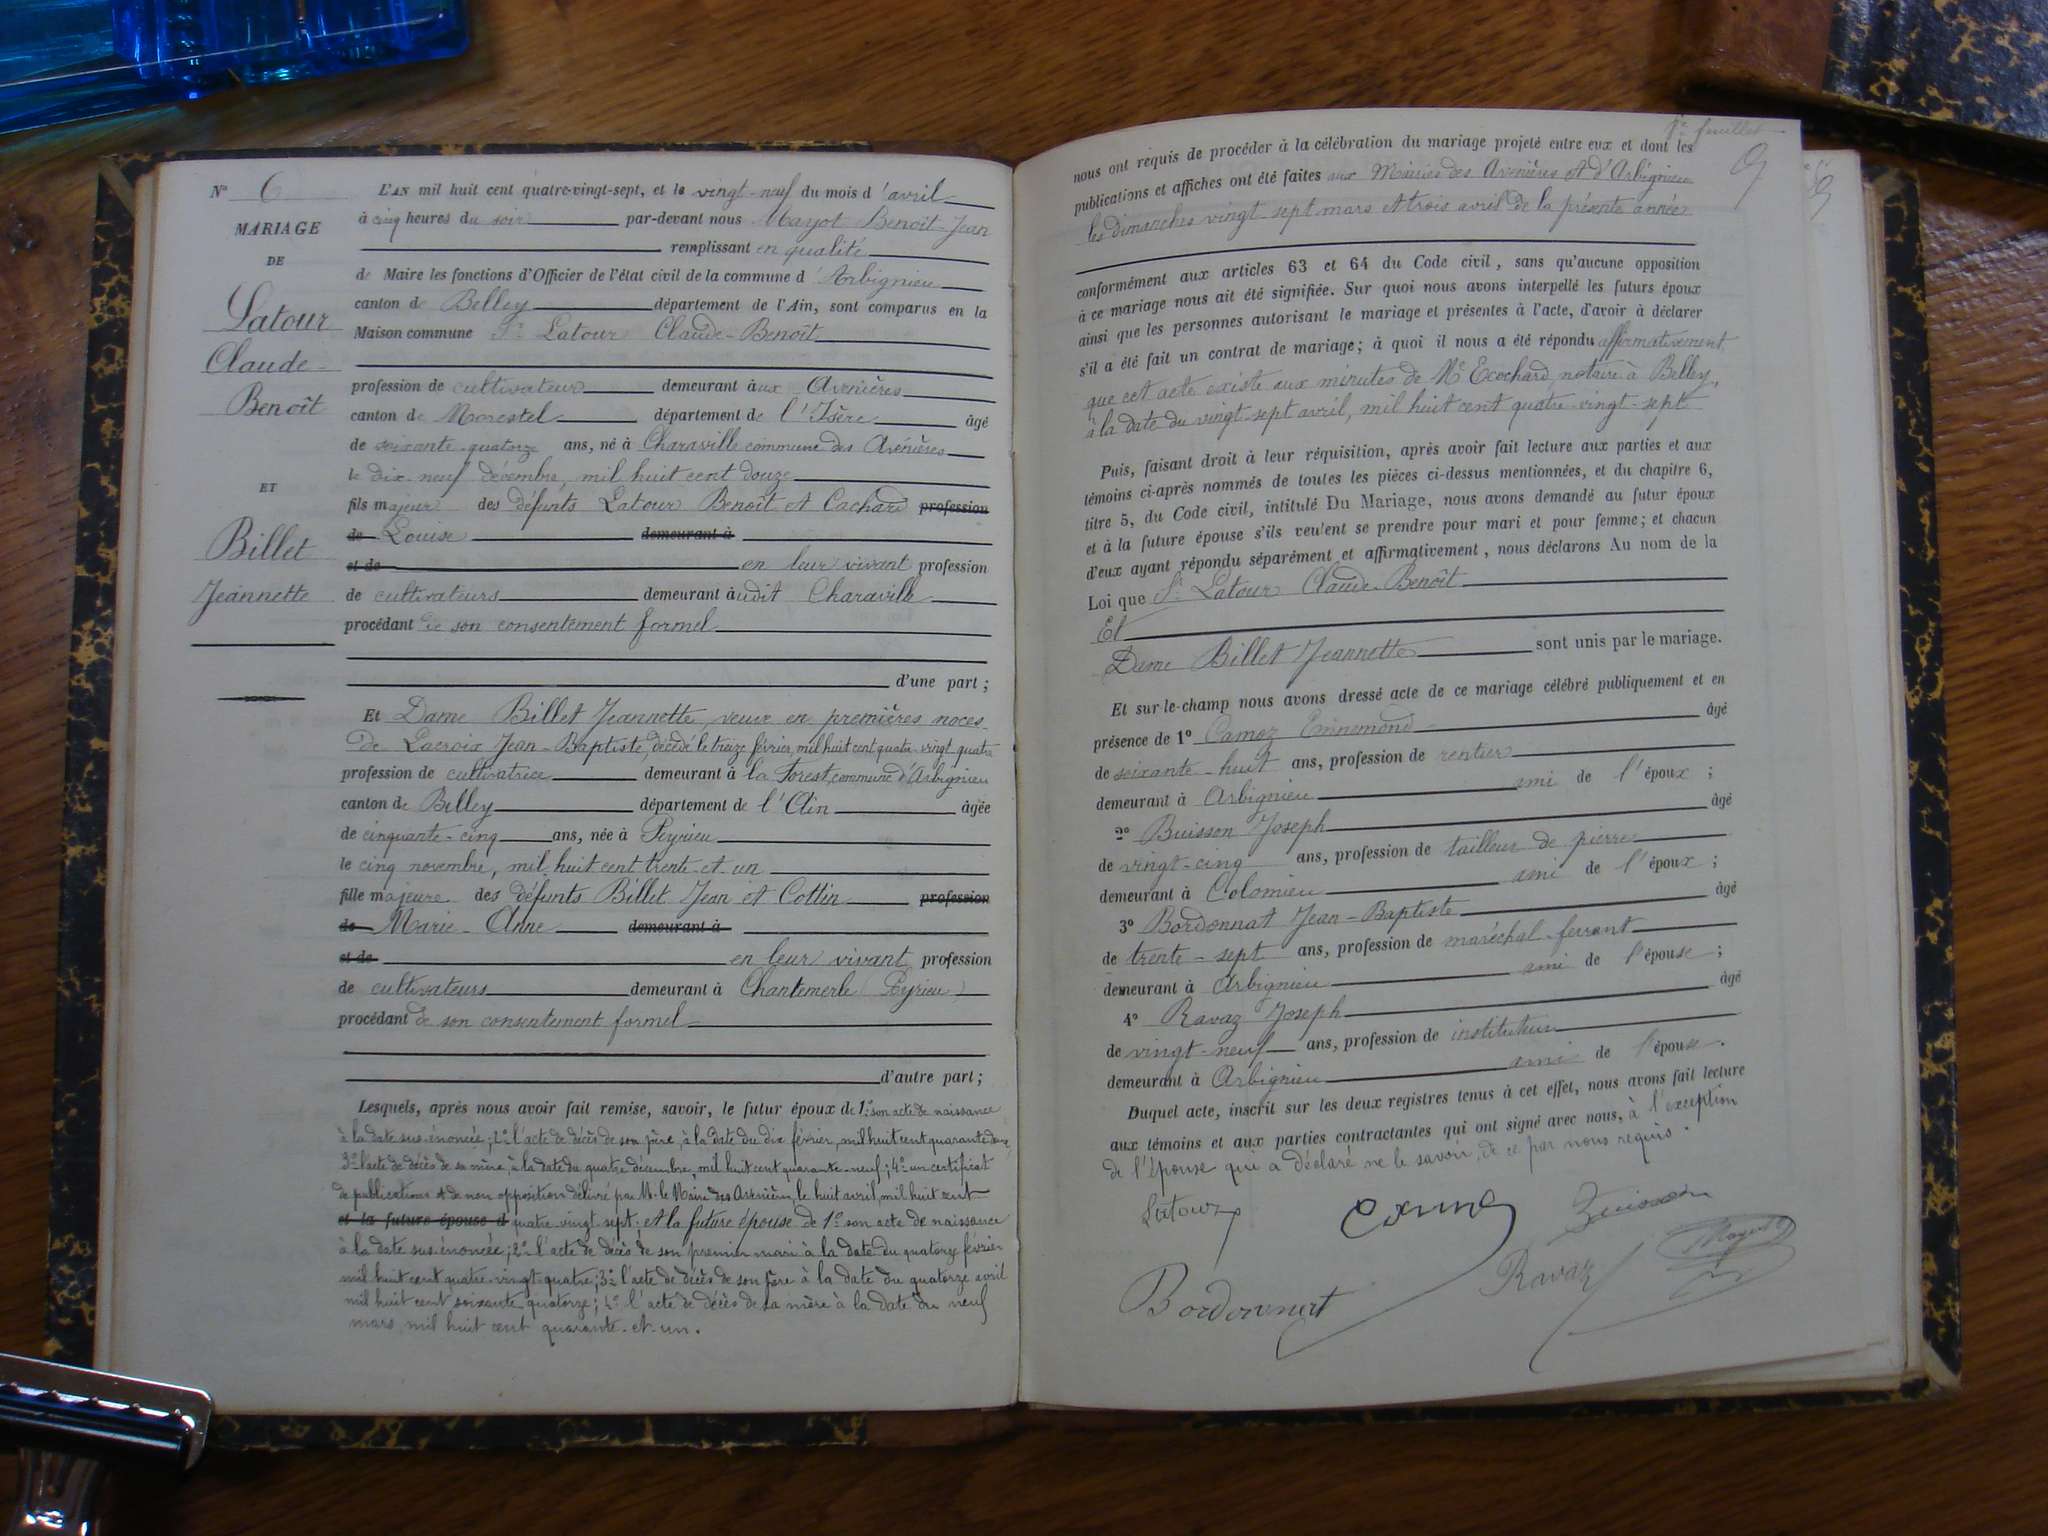 N° 6
MARIAGE
DE
Latour
Claude-
Benoît
ET
Billet
Jeannette
L'AN mil huit cent quatre-vingt-sept, et le vingt-neuf du mois d'avril
à cinq heures du soir par-devant nous Mayot Benoît-Jean
remplissant en qualité
de Maire les fonctions d'Officier de l'état civil de la commune d'Arbignieu
canton de Belley département de l'Ain, sont comparus en la
Maison commune Sr Latour Claude-Benoît
profession de cultivateur demeurant aux Avenières
canton de Morestel département de l'Isère âgé
de soixante-quatorze ans, né à Charaville commune des Avenières
le dix-neuf décembre, mil huit cent douze
fils majeur des défunts Latour Benoît et Cachard profession
de Louise demeurant à
et de en leur vivant profession
de cultivateurs demeurant audit Charaville
procédant de son consentement formel
d'une part;
Et Dame Billet Jeannette, veuve en premières noces
de Lacroix Jean-Baptiste, décédé le treize février, mil huit cent quatre-vingt-quatre
profession de cultivatrice demeurant à la Forest, commune d'Arbignieu
canton de Belley département de l'Ain âgée
de cinquante-cinq ans, née à Peyrieu
le cinq novembre, mil huit cent trente-et-un
fille majeure des défunts Billet Jean et Cottin profession
de Marie-Anne demeurant à
et de en leur vivant profession
de cultivateurs demeurant à Chantemerle (Peyrieu)
procédant de son consentement formel
d'autre part;
Lesquels, après nous avoir fait remise, savoir, le futur époux de 1° son acte de naissance
à la date sus-énoncée; 2° l'acte de décès de son père, à la date du dix février, mil huit cent quarante-deux;
3° l'acte de décès de sa mère, à la date du quatre décembre, mil huit cent quarante-neuf; 4° un certificat
de publications et de non opposition délivré par M. le Maire des Avenières, le huit avril, mil huit cent
et la future épouse d quatre-vingt-sept. Et la future épouse de 1° son acte de naissance
à la date sus-énoncée; 2° l'acte de décès de son premier mari à la date du quatorze février
mil huit cent quatre-vingt-quatre; 3° l'acte de décès de son père à la date du quatorze avril
mil huit cent soixante-quatorze; 4° l'acte de décès de sa mère à la date du neuf
mars mil huit cent quarante-et-un.
feuillet
9
9
nous ont requis de procéder à la célébration du mariage projeté entre eux et dont les
publications et affiches ont été faites aux Mairies des Avenières et d'Arbignieu
les dimanches vingt-sept mars et trois avril de la présente année
conformément aux articles 63 et 64 du Code civil, sans qu'aucune opposition
à ce mariage nous ait été signifiée. Sur quoi nous avons interpellé les futurs époux
ainsi que les personnes autorisant le mariage et présentes à l'acte, d'avoir à déclarer
s'il a été fait un contrat de mariage; à quoi il nous a été répondu affirmativement
que cet acte existe aux minutes de Me Exochard, notaire à Belley,
à la date du vingt-sept avril, mil huit cent quatre-vingt-sept
Puis, faisant droit à leur réquisition, après avoir fait lecture aux parties et aux
témoins ci-après nommés de toutes les pièces ci-dessus mentionnées, et du chapitre 6,
titre 5, du Code civil, intitulé Du Mariage, nous avons demandé au futur époux
et à la future épouse s'ils veulent se prendre pour mari et pour femme; et chacun
d'eux ayant répondu séparément et affirmativement, nous déclarons Au nom de la
Loi que Sr Latour Claude-Benoît
Et
Dame Billet Jeannette sont unis par le mariage.
Et sur-le-champ nous avons dressé acte de ce mariage célébré publiquement et en
présence de 1° Camoz Ennemond âgé
de soixante-huit ans, profession de rentier
demeurant à Arbignieu ami de l'époux;
2° Buisson Joseph âgé
de vingt-cinq ans, profession de tailleur de pierre
demeurant à Colomieu ami de l'époux;
3° Bordonnat Jean-Baptiste âgé
de trente-sept ans, profession de maréchal-ferrant
demeurant à Arbignieu ami de l'épouse;
4° Ravaz Joseph âgé
de vingt-neuf ans, profession de instituteur
demeurant à Arbignieu ami de l'épouse.
Duquel acte, inscrit sur les deux registres tenus à cet effet, nous avons fait lecture
aux témoins et aux parties contractantes qui ont signé avec nous, à l'exception
de l'épouse qui a déclaré ne le savoir, de ce par nous requis.
Latour Buisson
Mayot
Ravaz
Bordonnat